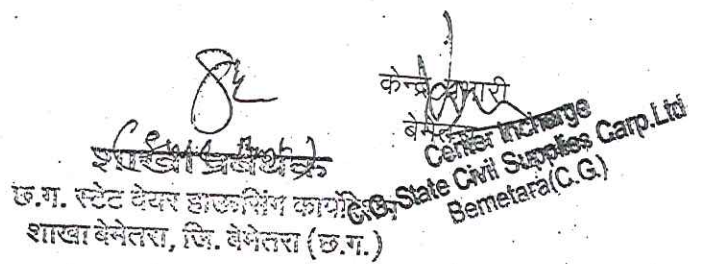 शाखा प्रबंधक
छ.ग. स्टेट वेयर हाऊसिंग कार्पोरेशन
शाखा बेमेतरा, जि. बेमेतरा (छ.ग.)
केन्द्र प्रभारी
Center Incharge
C.G. State Civil Supplies Carp.Ltd
Bemetara(C.G.)